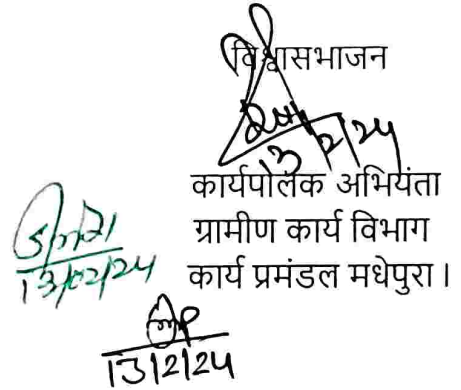 विश्वासभाजन
13/2/24
कार्यपालक अभियंता
ग्रामीण कार्य विभाग
कार्य प्रमंडल मधेपुरा।
13/02/24
13/2/24